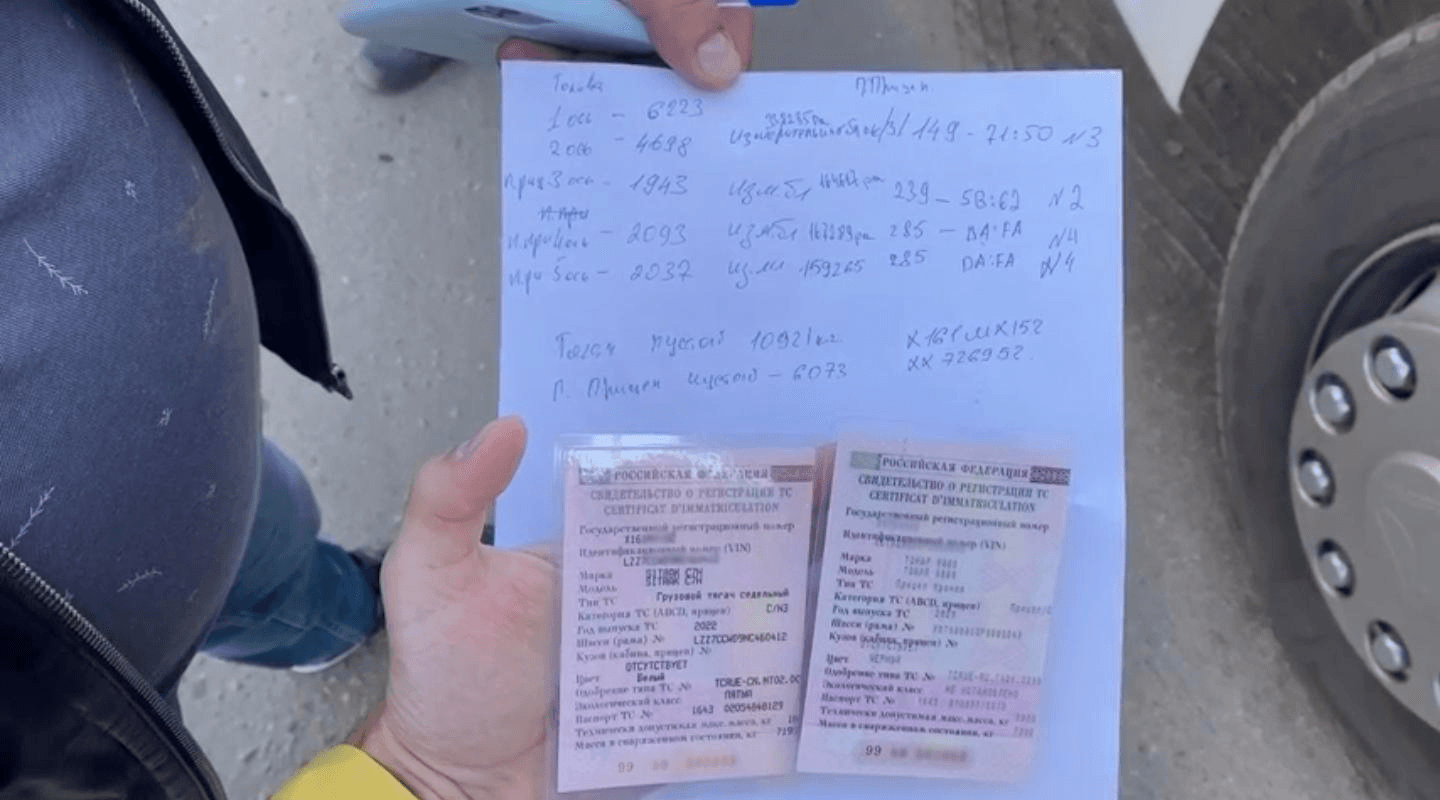 Голова П.Прицеп.
1 ось - 6223
2 ось - 4698 149 - 71:50 N3
3 ось - 1943 изм.бл 239 - 5B:62 N2
п.при
п.при 4 ось - 2093 изм.бл 167289 285 - DA:FA N4
п.при 5 ось - 2037 изм 159265 285 DA:FA N4
Тягач пустой 10921 кг. Х161МХ152
П. Прицеп пустой - 6073 ХХ 726952.
РОССИЙСКАЯ ФЕДЕРАЦИЯ
СВИДЕТЕЛЬСТВО О РЕГИСТРАЦИИ ТС
CERTIFICAT D'IMMATRICULATION
Государственный регистрационный номер
Х16
Идентификационный номер (VIN)
LZZ7
Марка SITRAK C7H
Модель SITRAK C7H
Тип ТС Грузовой тягач седельный
Категория ТС (ABCD, прицеп) C/N3
Год выпуска ТС 2022
Шасси (рама) № LZZ7CCWD9NC460412
Кузов (кабина, прицеп) №
ОТСУТСТВУЕТ
Цвет Белый
Одобрение типа ТС № TCRUE-CN.MT02.
Экологический класс ПЯТЫЙ
Паспорт ТС № 1643 02054848129
Технически допустимая макс. масса, кг
Масса в снаряженном состоянии, кг
99
РОССИЙСКАЯ ФЕДЕРАЦИЯ
СВИДЕТЕЛЬСТВО О РЕГИСТРАЦИИ ТС
CERTIFICAT D'IMMATRICULATION
Государственный регистрационный номер
Идентификационный номер (VIN)
Марка ТОНАР 9888
Модель ТОНАР 9888
Тип ТС Прицеп
Категория ТС (ABCD, прицеп) Прицеп/
Год выпуска ТС
Шасси (рама) №
Кузов (кабина, прицеп) №
ОТСУТСТВУЕТ
Цвет ЧЕРНЫЙ
Одобрение типа ТС №
Экологический класс НЕ УСТАНОВЛЕНО
Паспорт ТС № 1643
Технически допустимая макс. масса, кг
Масса в снаряженном состоянии, кг
99